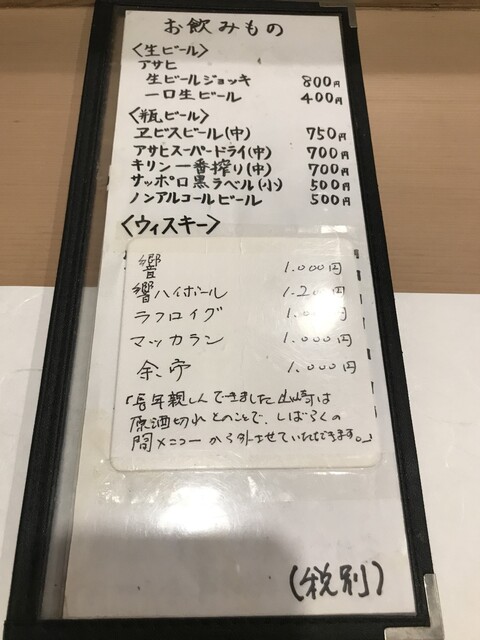 お飲みもの
〈生ビール〉
アサヒ
生ビールジョッキ 800円
一口生ビール 400円
〈瓶ビール〉
ヱビスビール(中) 750円
アサヒスーパードライ(中) 700円
キリン一番搾り(中) 700円
サッポロ黒ラベル(小) 500円
ノンアルコールビール 500円
〈ウィスキー〉
響 1.000円
響ハイボール 1.200円
ラフロイグ 1.000円
マッカラン 1.000円
余市 1.000円
「長年親しんできました山崎は
原酒切れとのことで、しばらくの
間メニューから外させていただきます。」
(税別)